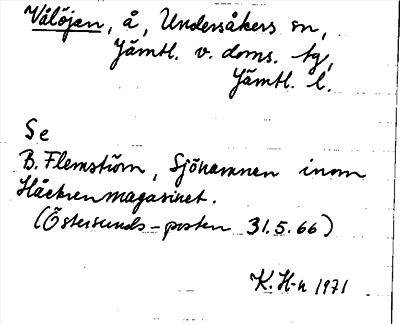 Vålöjan, å, Undersåkers sn,
Jämtl. v. doms. tg,
Jämtl. l.
Se
B. Flemström, Sjönamnen inom
Håckrenmagasinet.
(Östersunds-posten 31.5.66)
K. H-n 1971